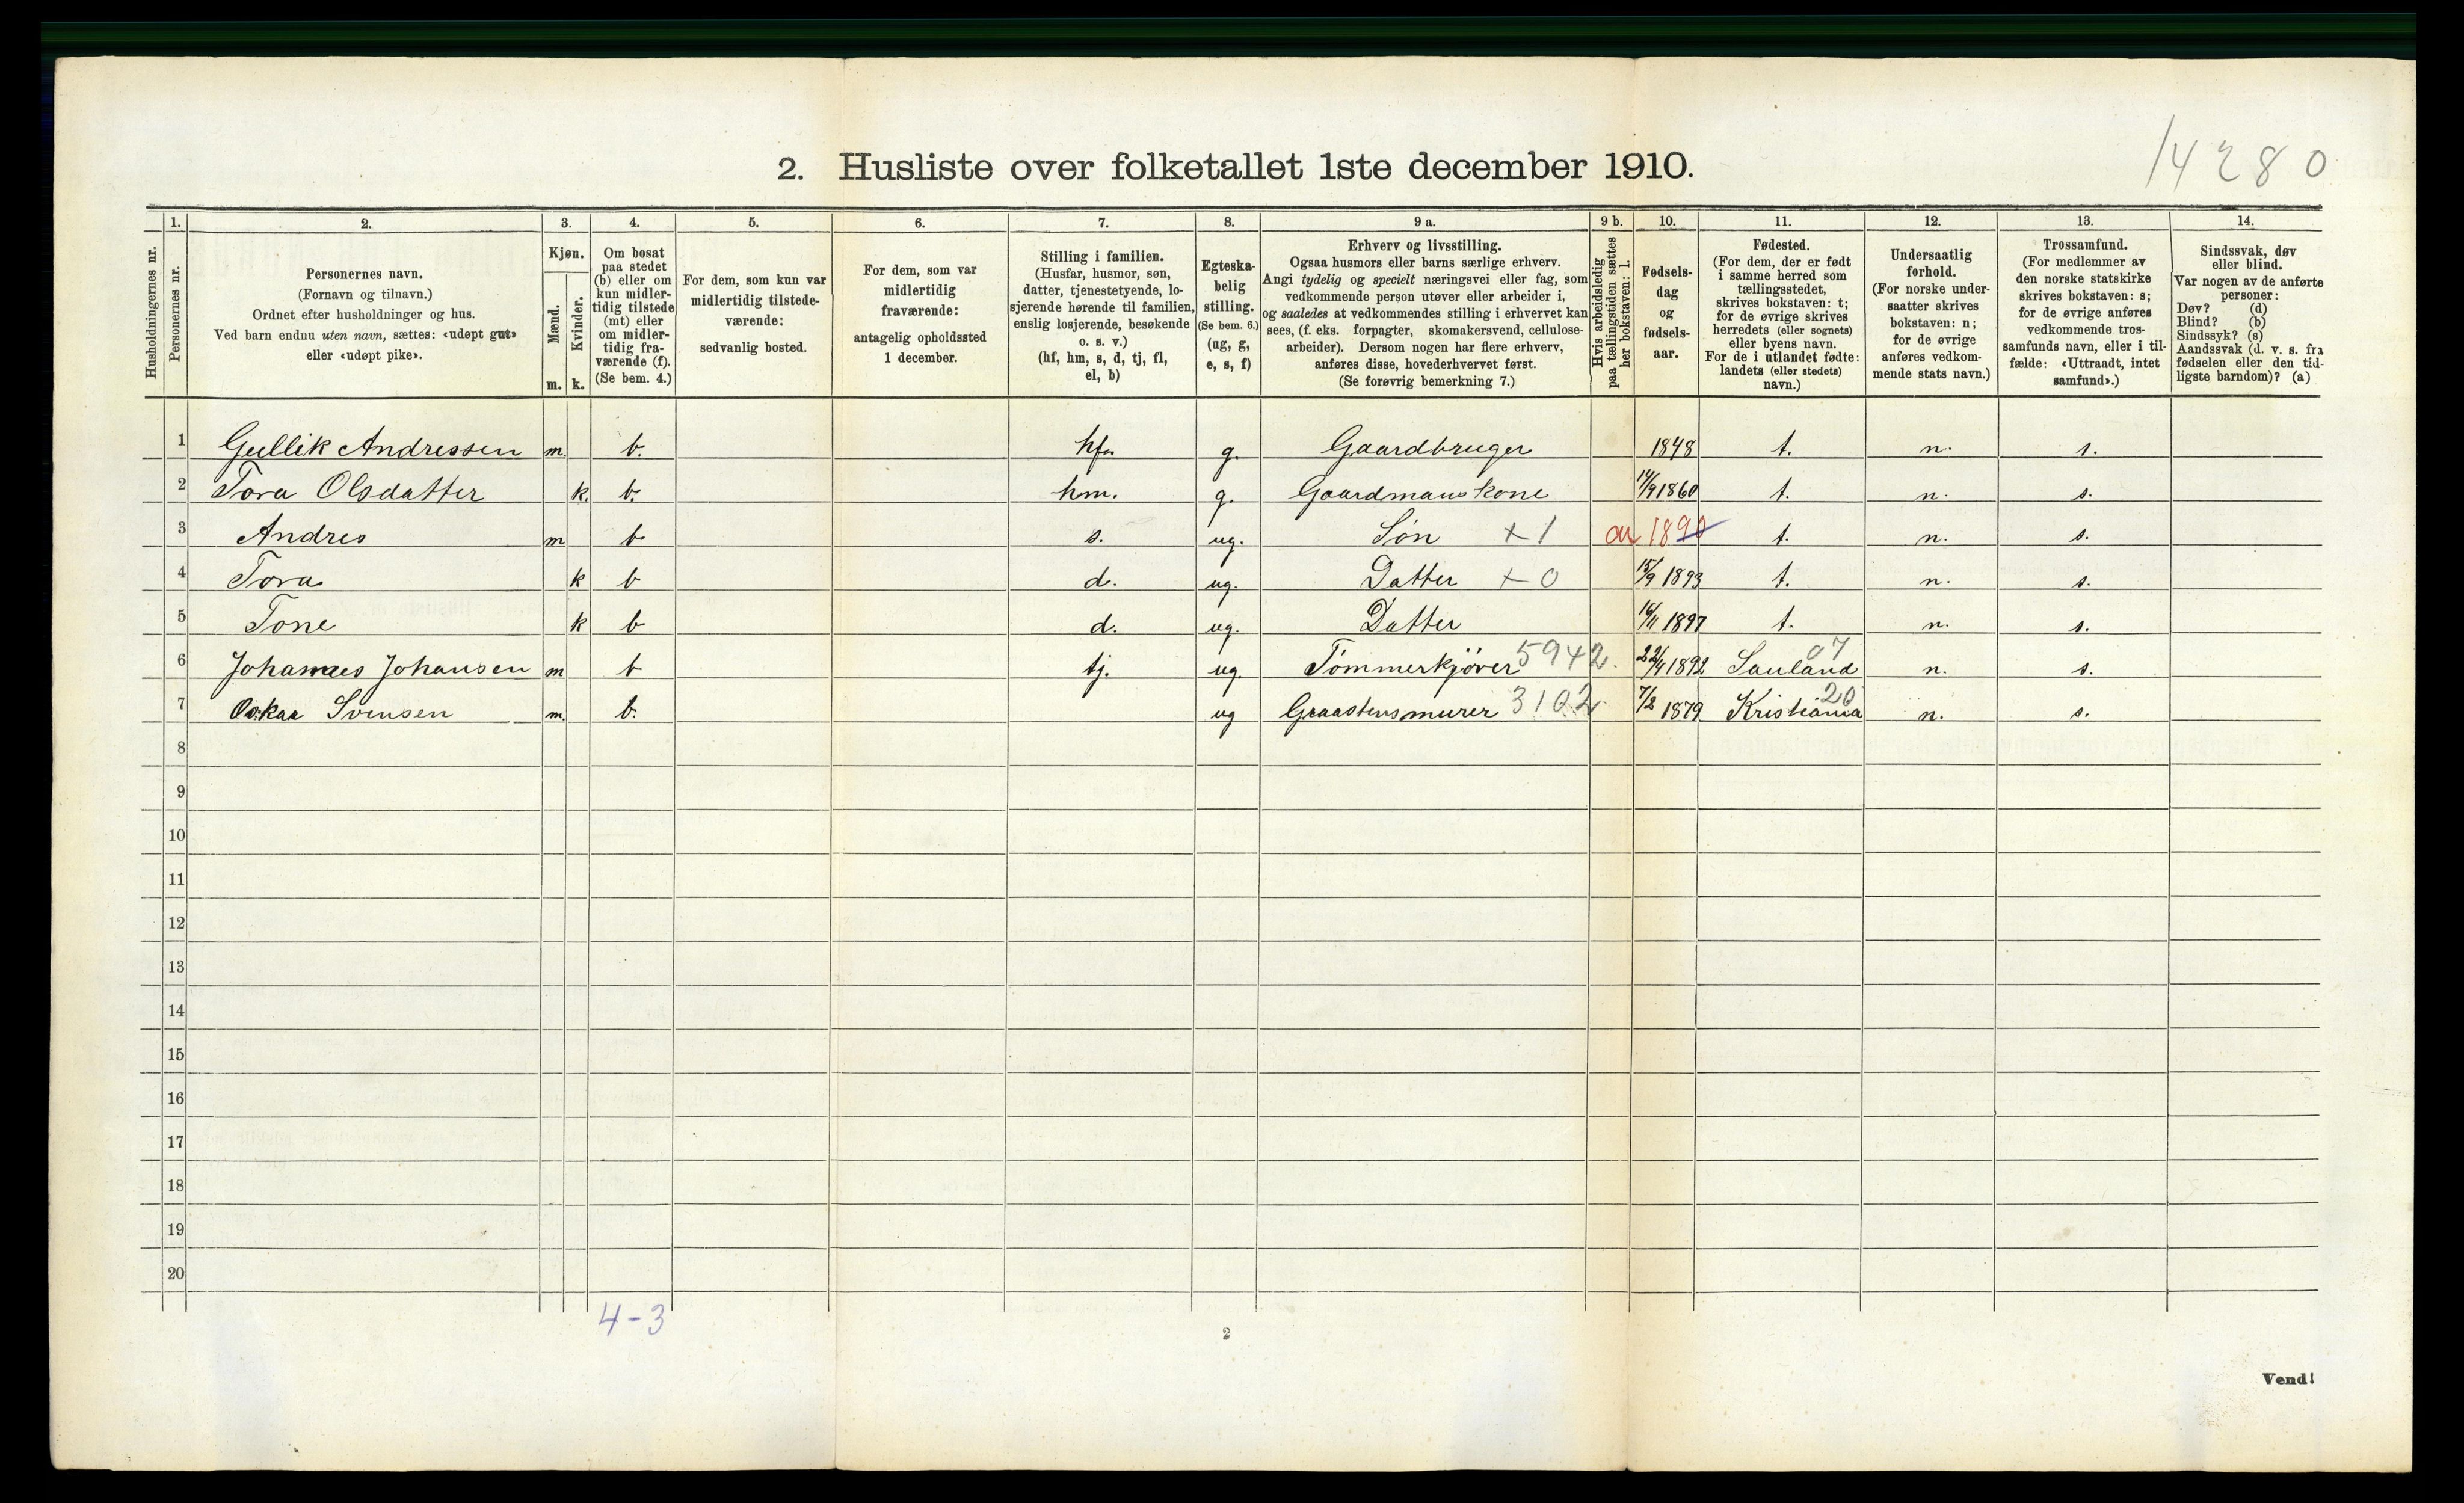 14280
2. Husliste over folketallet 1ste december 1910.
1. 2. 3. 4. 5. 6. 7. 8. 9 a. 9 b. 10. 11. 12. 13. 14.
Husholdningernes nr.
Personernes nr.
Personernes navn.
(Fornavn og tilnavn.)
Ordnet efter husholdninger og hus.
Ved barn endnu uten navn, sættes: «udøpt gut»
eller «udøpt pike».
Kjøn.
Mænd.
Kvinder.
m. k.
Om bosat
paa stedet
(b) eller om
kun midler-
tidig tilstede
(mt) eller
om midler-
tidig fra-
værende (f).
(Se bem. 4.)
For dem, som kun var
midlertidig tilstede-
værende:
sedvanlig bosted.
For dem, som var
midlertidig
fraværende:
antagelig opholdssted
1 december.
Stilling i familien.
(Husfar, husmor, søn,
datter, tjenestetyende, lo-
sjerende hørende til familien,
enslig losjerende, besøkende
o. s. v.)
(hf, hm, s, d, tj, fl,
el, b)
Egteska-
belig
stilling.
(Se bem. 6.)
(ug, g,
e, s, f)
Erhverv og livsstilling.
Ogsaa husmors eller barns særlige erhverv.
Angi tydelig og specielt næringsvei eller fag, som
vedkommende person utøver eller arbeider i,
og saaledes at vedkommendes stilling i erhvervet kan
sees, (f. eks. forpagter, skomakersvend, cellulose-
arbeider). Dersom nogen har flere erhverv,
anføres disse, hovederhvervet først.
(Se forøvrig bemerkning 7.)
Hvis arbeidsledig
paa tællingstiden sættes
her bokstaven: l.
Fødsels-
dag
og
fødsels-
aar.
Fødested.
(For dem, der er født
i samme herred som
tællingsstedet,
skrives bokstaven: t;
for de øvrige skrives
herredets (eller sognets)
eller byens navn.
For de i utlandet fødte:
landets (eller stedets)
navn.)
Undersaatlig
forhold.
(For norske under-
saatter skrives
bokstaven: n;
for de øvrige
anføres vedkom-
mende stats navn.)
Trossamfund.
(For medlemmer av
den norske statskirke
skrives bokstaven: s;
for de øvrige anføres
vedkommende tros-
samfunds navn, eller i til-
fælde: «Uttraadt, intet
samfund».)
Sindssvak, døv
eller blind.
Var nogen av de anførte
personer:
Døv? (d)
Blind? (b)
Sindssyk? (s)
Aandssvak (d. v. s. fra
fødselen eller den tid-
ligste barndom)? (a)
1 Gullik Andressen m b. hf. g. Gaardbruger 1848 t. n. s.
2 Tora Olsdatter k. b. hm. g. Gaardmanskone 1860 t. n. s.
3 Andres m b s. ug. Søn + 1 1890 t. n. s.
4 Tora k b d. ug. Datter + 0 15/9 1893 t. n. s.
5 Tone k b d. ug. Datter 16/11 1897 t. n. s.
6 Johannes Johansen m b tj. ug. Tømmerkjører 5942. 22/4 1892 Sauland 07 n. s.
7 Oskar Svensen m. b. ug Graastensmurer 3102 7/2 1879 Kristiania 20 n. s.
8
9
10
11
12
13
14
15
16
17
18
19
20
4-3
2
Vend!